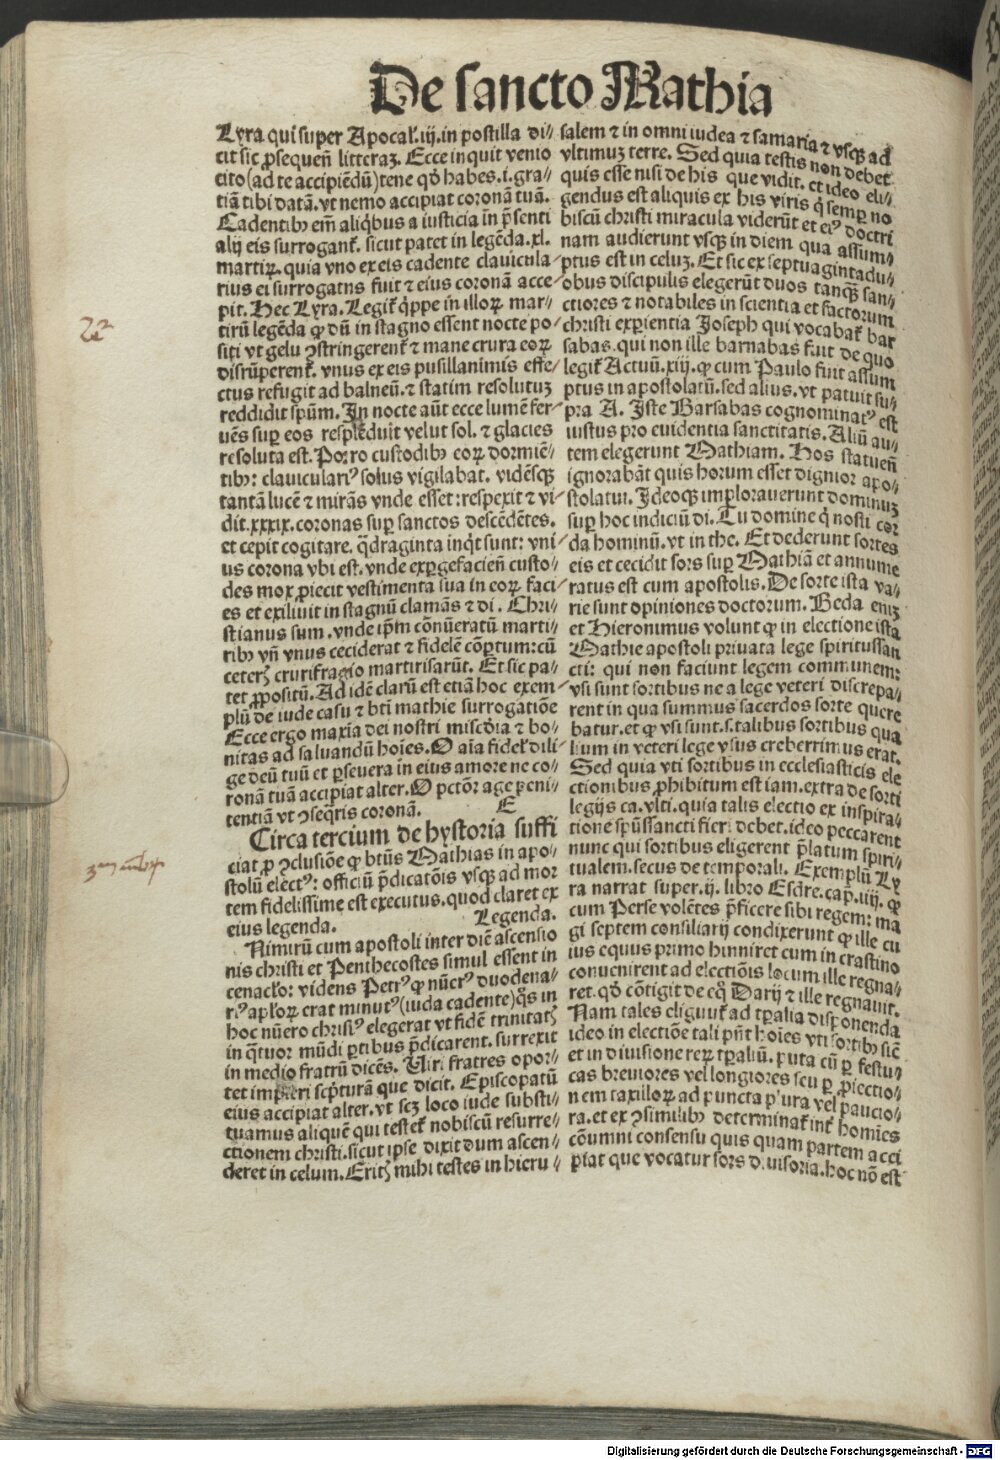 De sancto Mathia
Lyra qui super Apocal̕.iij.in postilla di⸗
cit sic ꝓsequen̄ litteraꝫ. Ecce inquit venio
cito (ad te accipiēdū) tene qd̕ habes.i.gra⸗
tiā tibi datā.vt nemo accipiat coronā tuā.
Cadentibꝰ em̄ aliq̇bus a iusticia in p̄senti
alij eis surrogant̕. sicut patet in legēda.xl.
martiꝝ.quia vno ex eis cadente clauicula⸗
rius ei surrogatus fuit ⁊ eius coronā acce⸗
pit. Hec Lyra. Legit̕ q̇ppe in illoꝝ mar⸗
tirū legēda ꝙ dū in stagno essent nocte po⸗
siti vt gelu ꝯstringerent̕ ⁊ mane crura eoꝝ
disrūperent̕. vnus ex eis pusillanimis effe⸗
ctus refugit ad balneū.⁊ statim resolutuꝫ
reddidit spūm. In nocte aūt ecce lumē fer⸗
uēs suꝑ eos resplēduit velut sol. ⁊ glacies
resoluta est. Porro custodibꝰ eoꝝ dormiē⸗
tibꝰ: clauiculariꝰ solus vigilabat. vidēsqꝫ
tantā lucē ⁊ mirās vnde esset: respexit ⁊ vi⸗
dit.xxxix.coronas suꝑ sanctos descēdētes.
et cepit cogitare. q̄draginta inq̇t sunt: vni⸗
us corona vbi est. vnde exꝑgefacien̄ custo⸗
des mox ꝓiecit vestimenta sua in eoꝝ faci⸗
es et exiliuit in stagnū clamās ⁊ di. Chri⸗
stianus sum. vnde ip̄m cōnūeratū marti⸗
ribꝰ vn̄ vnus ceciderat ⁊ fidelē cōꝑtum: cū
ceterꝭ crurifragio martirisarūt. Et sic pa⸗
tet ꝓpositū. Ad idē clarū est etiā hoc exem⸗
plū de iude casu ⁊ bt̄i mathie surrogatiōe
Ecce ergo maxīa dei nostri mīscd̕ia ⁊ bo⸗
nitas ad saluandū hoīes. O aīa fidel̕ dili⸗
ge deū tuū et ꝑseuera in eius amore ne co⸗
ronā tuā accipiat alter. O pctōr age peni⸗
tentiā vt ꝯseq̄ris coronā. E
Circa tercium de hystoria suffi
ciat ꝓ ꝯclusiōe ꝙ bt̄us Mathias in apo⸗
stolū electꝰ: officiū p̄dicatōis vsqꝫ ad mor
tem fidelissime est executus. quod claret ex
eius legenda. Legenda.
Nimirū cum apostoli inter diē ascensio
nis christi et Penthecostes simul essent in
cenacl̕o: videns Petrꝰ ꝙ nūerꝰ duodena⸗
riꝰ apl̕oꝝ erat minutꝰ (iuda cadente) q̄s in
hoc nūero christꝰ elegerat vt fidē trinitatꝭ
in q̄tuor mūdi ꝑtibus p̄dicarent. surrexit
in medio fratrū dicēs. Uiri fratres opor⸗
tet impleri scp̄turā que dicit. Episcopatū
eius accipiat alter. vt scꝫ loco iude substi⸗
tuamus aliquē qui testet̕ nobiscū resurre⸗
ctionem christi. sicut ipse dixit dum ascen⸗
deret in celum. Eritꝭ mihi testes in hieru⸗
salem ⁊ in omni iudea ⁊ samaria ⁊ vsqꝫ ad
vltimuꝫ terre. Sed quia testis non debet
quis esse nisi de his que vidit. et ideo eli⸗
gendus est aliquis ex his viris q̇ semꝑ no
biscū christi miracula viderūt et eiꝰ doctri
nam audierunt vsqꝫ in diem qua assum⸗
ptus est in celuꝫ. Et sic ex septuagintadu⸗
obus discipulis elegerūt duos tanqꝫ san⸗
ctiores ⁊ notabiles in scientia et factorum
christi exꝑientia Joseph qui vocabat̕ bar
sabas. qui non ille barnabas fuit de quo
legit̕ Actuū.xiij. ꝙ cum Paulo fuit assum
ptus in apostolatū. sed alius. vt patuit su⸗
pra A. Iste Barsabas cognominatꝰ est
iustus pro euidentia sanctitatis. Aliū au⸗
tem elegerunt Mathiam. Hos statuen̄
ignorabāt quis horum esset dignior apo⸗
stolatui. Ideoqꝫ implorauerunt dominuꝫ
suꝑ hoc indiciū di. Tu domine q̇ nosti cor
da hominū. vt in the. Et dederunt sortes
eis et cecidit sors suꝑ Mathiā et annume
ratus est cum apostolis. De sorte ista va⸗
rie sunt opiniones doctorum. Beda eniꝫ
et Hieronimus volunt ꝙ in electione ista
Mathie apostoli priuata lege spiritussan
cti: qui non faciunt legem communem:
vsi sunt sortibus ne a lege veteri discrepa⸗
rent in qua summus sacerdos sorte quere
batur. et ꝙ vsi sunt.s.talibus sortibus qua
lium in veteri lege vsus creberrimus erat.
Sed quia vti sortibus in ecclesiasticis ele
ctionibus ꝓhibitum est iam. extra de sorti
legijs ca.vlti. quia talis electio ex inspira⸗
tione spūssancti fieri debet. ideo peccarent
nunc qui sortibus eligerent p̄latum spiri⸗
tualem. secus de temporali. Exemplū Ly
ra narrat super.ij. libro Esdre. cap.iiij. ꝙ
cum Perse volētes p̄ficere sibi regem: ma
gi septem consiliarij condixerunt ꝙ ille cu
ius equus primo hinniret cum in crastino
conuenirent ad electiōis locum ille regna⸗
ret. qd̕ cōtigit de eq̇ Darij ⁊ ille regnauit.
Nam tales eligunt̕ ad tp̄alia disponenda
ideo in electiōe tali pn̄t hoīes vti sortibꝰ sic̄
et in diuisione reꝝ tp̄aliū. puta cū ꝑ festu⸗
cas breuiores vel longiores seu ꝑ ꝓiectio⸗
nem taxilloꝝ ad puncta plura vel paucio⸗
ra. et ex ꝯsimilibꝰ determinat̕ int̕ homīes
cōumni consensu quis quam partem acci
piat que vocatur sors diuisoria. hoc nō est
Digitalisierung gefördert durch die Deutsche Forschungsgemeinschaft - DFG